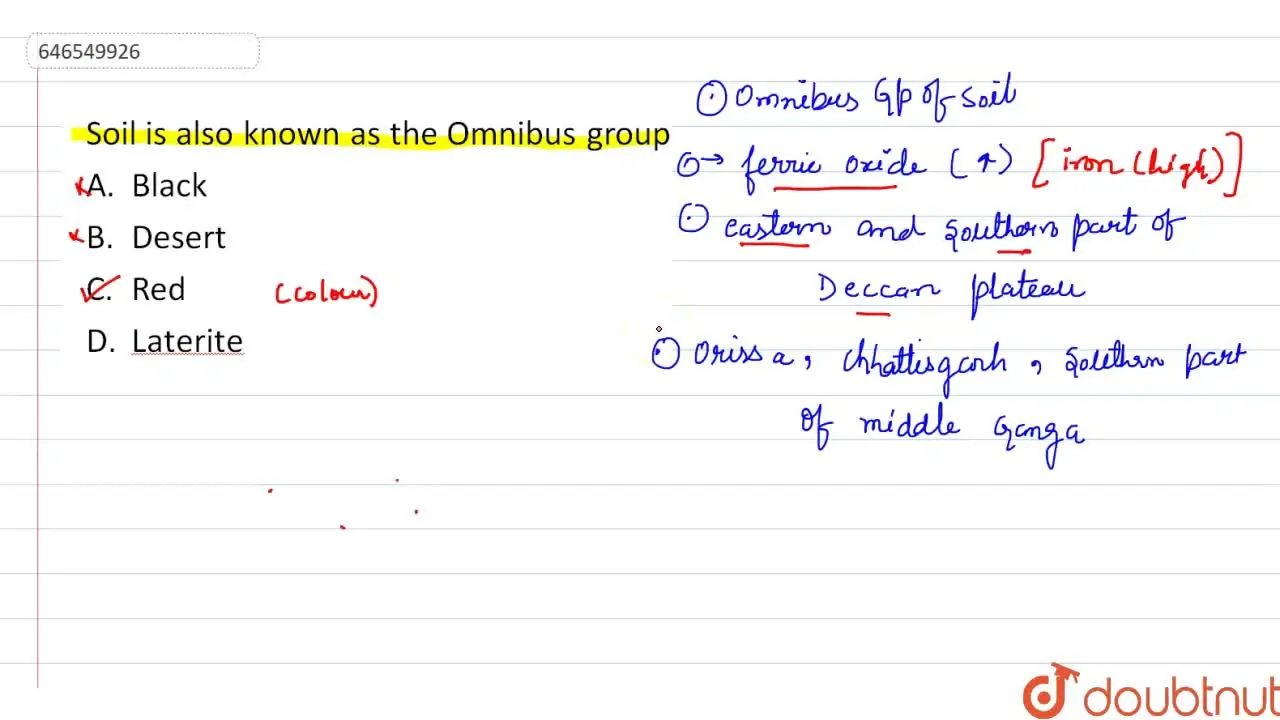 646549926
Soil is also known as the Omnibus group
A. Black
B. Desert
C. Red (colour)
D. Laterite
Omnibus Gp of soil
→ ferric oxide (↑) [iron (high)]
eastern and southern part of
Deccan plateau
Orissa, Chhattisgarh, Southern part
of middle Ganga
doubtnut